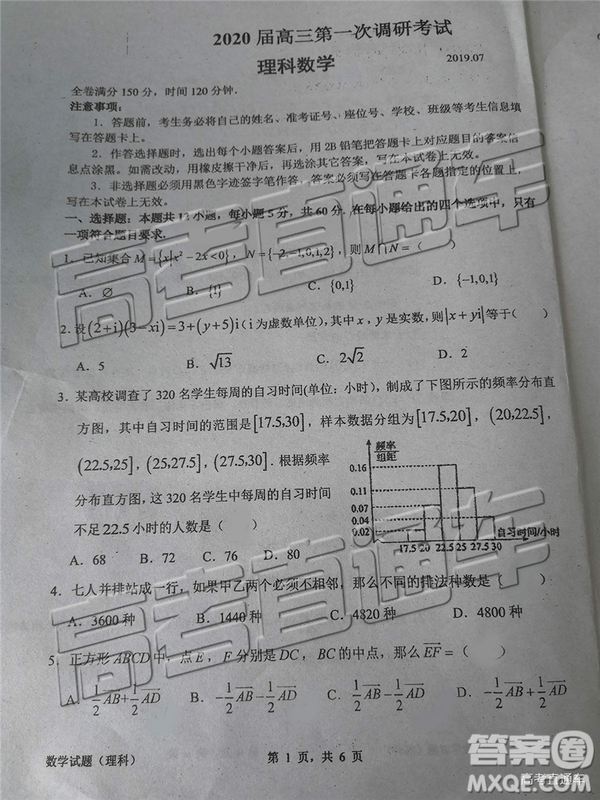 2020 届高三第一次调研考试
理科数学
2019.07
全卷满分 150 分，时间 120 分钟.
注意事项：
1．答题前，考生务必将自己的姓名、准考证号、座位号、学校、班级等考生信息填
写在答题卡上。
2．作答选择题时，选出每个小题答案后，用 2B 铅笔把答题卡上对应题目的答案信
息点涂黑。如需改动，用橡皮擦干净后，再选涂其它答案，写在本试卷上无效。
3．非选择题必须用黑色字迹签字笔作答，答案必须写在答题卡各题指定的位置上，
写在本试卷上无效。
一、选择题：本题共 12 小题，每小题 5 分，共 60 分．在每小题给出的四个选项中，只有
一项符合题目要求．
1．已知集合 M={x|x²−2x<0}，N={−2,−1,0,1,2}，则 M∩N=（ ）
A．∅ B．{1} C．{0,1} D．{−1,0,1}
2．设(2+i)(3−xi)=3+(y+5)i（i 为虚数单位），其中 x，y 是实数，则|x+yi|等于（ ）
A．5 B．√13 C．2√2 D．2
3．某高校调查了 320 名学生每周的自习时间(单位：小时)，制成了下图所示的频率分布直
方图，其中自习时间的范围是[17.5,30]，样本数据分组为[17.5,20]，(20,22.5]，
(22.5,25]，(25,27.5]，(27.5,30]．根据频率
分布直方图，这 320 名学生中每周的自习时间
不足 22.5 小时的人数是（ ）
A．68 B．72 C．76 D．80
频率
组距
0.16
0.12
0.08
0.04
0.02
17.5 20 22.5 25 27.5 30
自习时间/小时
4．七人并排站成一行，如果甲乙两个必须不相邻，那么不同的排法种数是（ ）
A．3600 种 B．1440 种 C．4820 种 D．4800 种
5．正方形 ABCD 中，点 E，F 分别是 DC，BC 的中点，那么 EF=（ ）
A．1/2 AB+1/2 AD B．−1/2 AB−1/2 AD C．−1/2 AB+1/2 AD D．1/2 AB−1/2 AD
数学试题（理科）
第 1 页，共 6 页
高考直通车
高考直通车
高考直通车
答案卷
高考直通车
MXQE.COM